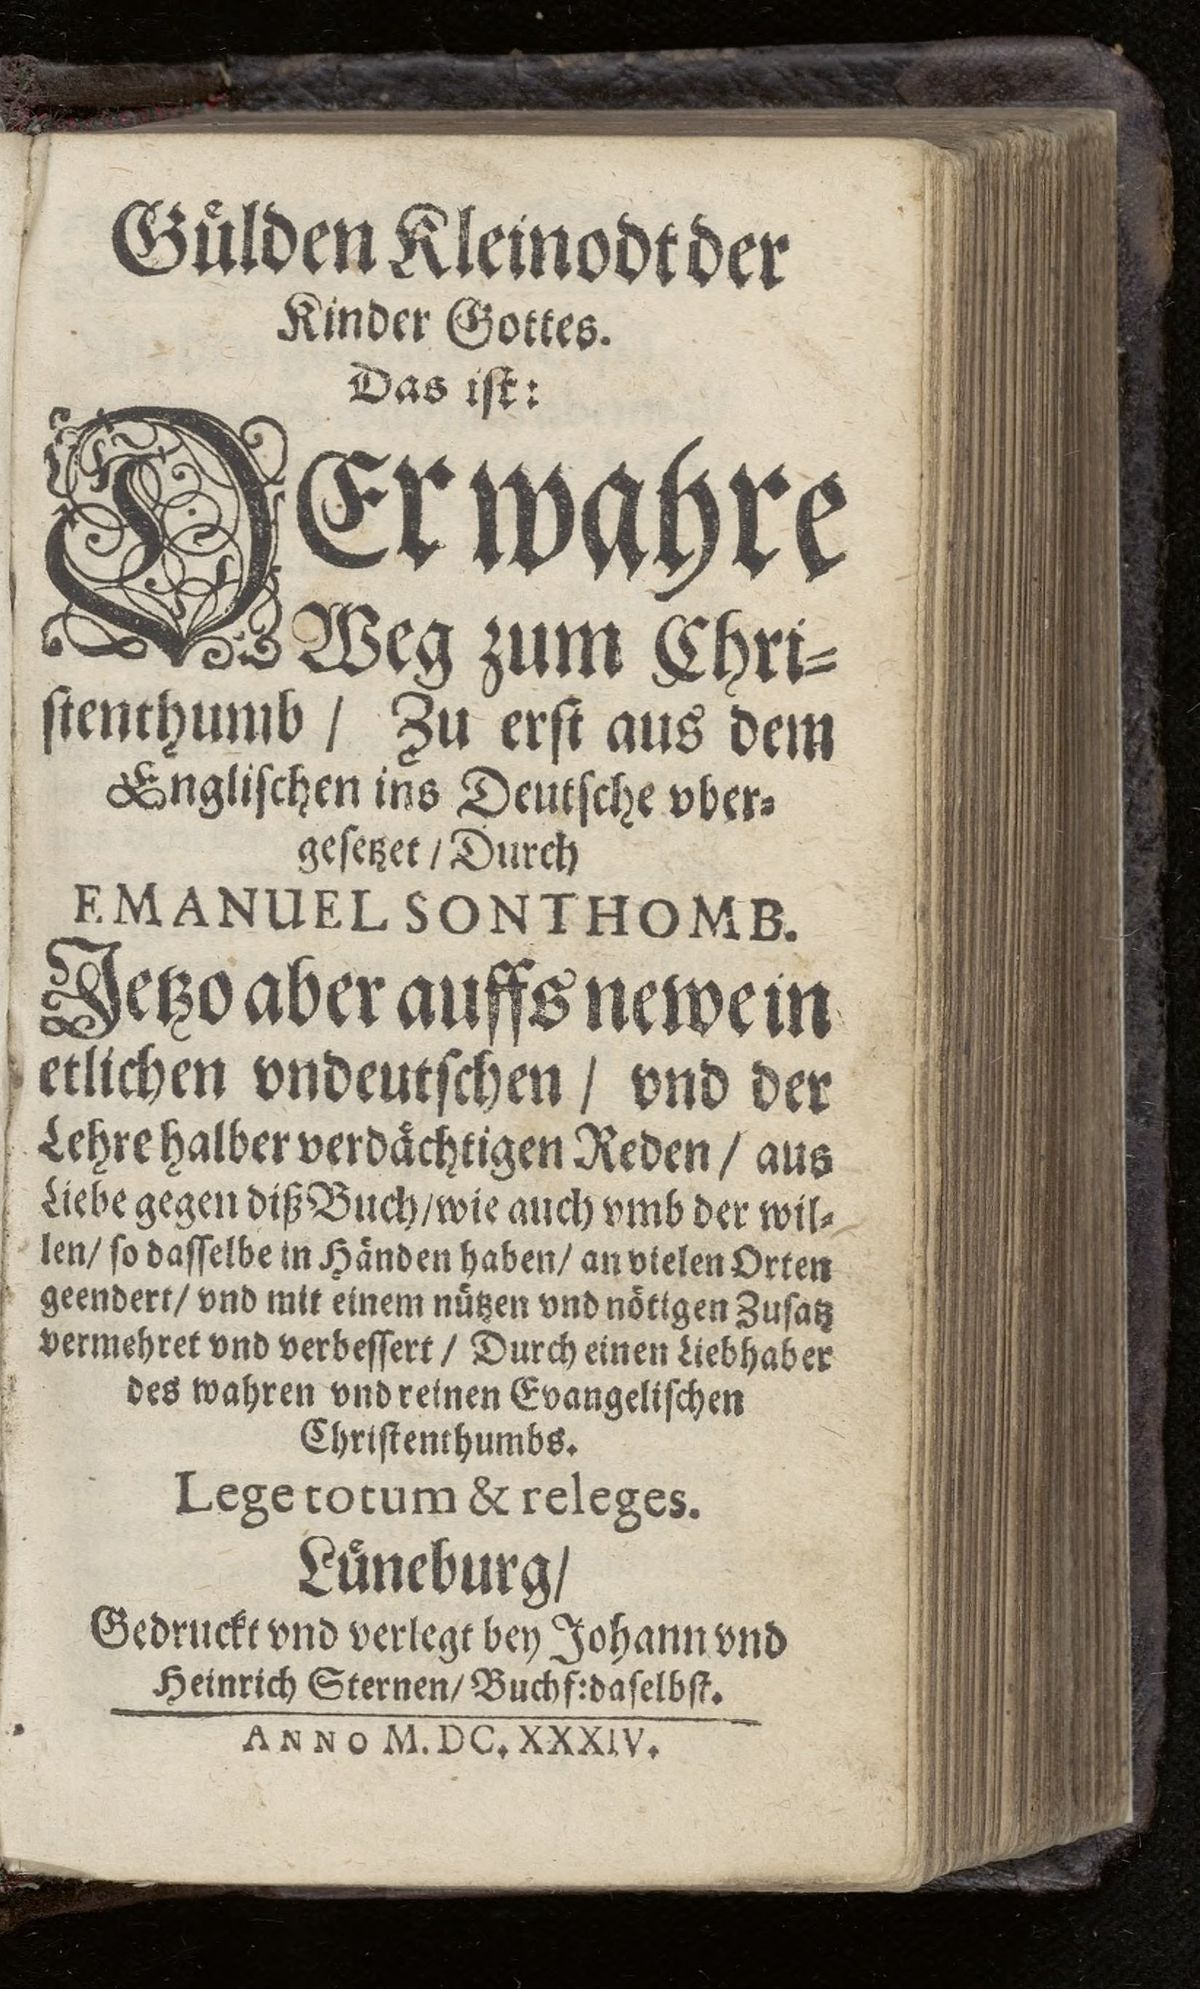 Gülden Kleinodt der
Kinder Gottes.
Das ist:
DEr wahre
Weg zum Chri-
stenthumb / Zu erst aus dem
Englischen ins Deutsche vber-
gesetzet / Durch
EMANUEL SONTHOMB.
Jetzo aber auffs newe in
etlichen vndeutschen / vnd der
Lehre halber verdächtigen Reden / aus
Liebe gegen diß Buch / wie auch vmb der wil-
len / so dasselbe in Händen haben / an vielen Orten
geendert / vnd mit einem nützen vnd nötigen Zusatz
vermehret vnd verbessert / Durch einen Liebhaber
des wahren vnd reinen Evangelischen
Christenthumbs.
Lege totum & releges.
Lüneburg /
Gedruckt vnd verlegt bey Johann vnd
Heinrich Sternen / Buchf: daselbst.
ANNO M. DC. XXXIV.